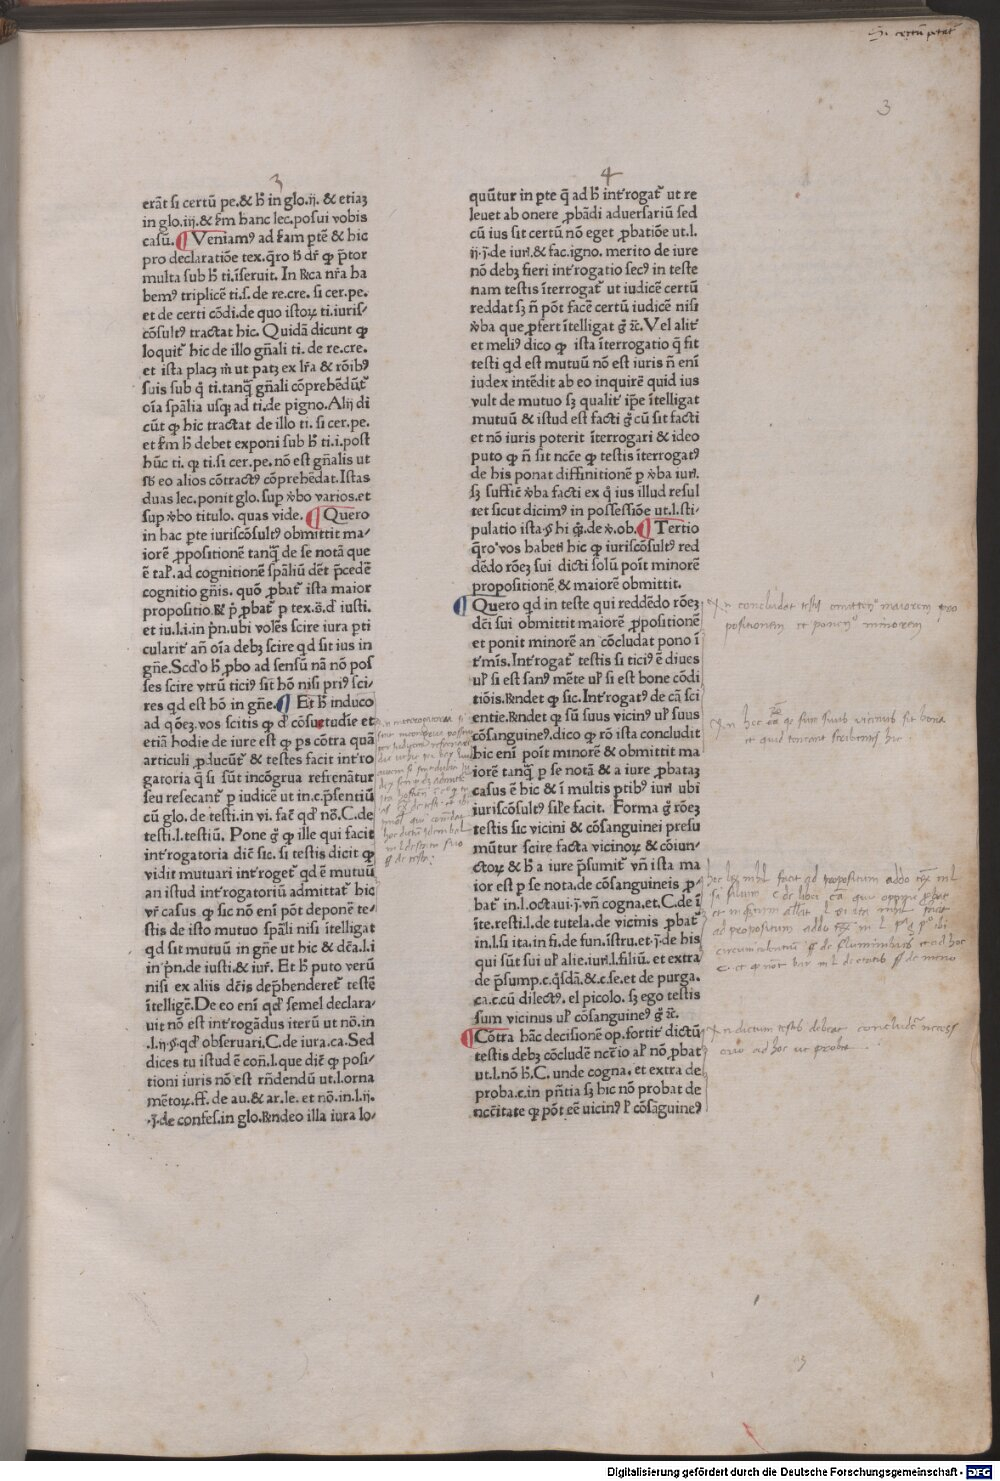 Si certū petat᷑
3
3
erāt si certū pe.& h̄ in glo.ij. & etiaꝫ
in glo.iij.& fm hanc lec.posui vobis
casū. ¶ Veniamꝰ ad fam ptē & hic
pro declaratiōe tex.q̄ro h̄ dr̄ ꝙ p̄tor
multa sub h̄ ti.īseruit. In ꝶca nr̄a ha
bemꝰ triplicē ti.s. de re.cre. si cer.pe.
et de certi cōdi.de quo istoꝝ ti.iuris⸗
cōsultꝰ tractat hic. Quidā dicunt ꝙ
loquit᷑ hic de illo gn̄ali ti. de re.cre.
et ista placꝫ m̄ ut patꝫ ex lr̄a & rōibꝰ
suis sub q̄ ti.tanq̄ gn̄ali cōprehēdūt᷑
oīa spālia usqꝫ ad ti.de pigno.Alij di
cūt ꝙ hic tractat de illo ti. si cer.pe.
et fm h̄ debet exponi sub h̄ ti.i.post
hūc ti. ꝙ ti.si cer.pe. nō est gn̄alis ut
sb eo alios cōtractꝰ cōprehēdat.Istas
duas lec.ponit glo.sup ꝟbo varios.et
sup ꝟbo titulo. quas vide. ¶ Quero
in hac pte iuriscōsultꝰ obmittit ma⸗
iorē ꝓpositionē tanq̄ de se notā que
ē tal̓.ad cognitionē spāliū dēt p̄cedē
cognitio gn̄is. quō ꝓbat᷑ ista maior
propositio.ꝶ p̄ ꝓbat᷑ p tex.s̄.d̓ iusti.
et iu.l.i.in p̄n.ubi volēs scire iura pti
cularit᷑ an̄ oīa debꝫ scire qd sit ius in
gn̄e.Scd̓o h̄ pbo ad sensū nā nō pos
ses scire vtrū ticiꝰ sit hō nisi priꝰ sci⸗
res qd est hō in gn̄e.¶ Et h̄ induco
ad q̄ōeꝫ.vos scitis ꝙ d̓ cōsuetudīe et
etiā hodie de iure est ꝙ ps cōtra quā
articuli ꝓducūt᷑ & testes facit int᷑ro
gatoria q̄ si sūt incōgrua refrenātur
seu resecant᷑ p iudicē ut in.c.p̄sentiū
cū glo.de testi.in vi. fac̄ qd̓ nō.C.de
testi.l.testiū. Pone g̅ ꝙ ille qui facit
int᷑rogatoria dic̄ sic. si testis dicit ꝙ
vidit mutuari int᷑roget᷑ qd ē mutuū
an istud int᷑rogatoriū admittat᷑ hic
vr̄ casus ꝙ sic nō enī pōt deponē te⸗
stis de isto mutuo spāli nisi ītelligat
qd sit mutuū in gn̄e ut hic & dc̄a.l.i
in p̄n.de iusti.& iur̄. Et h̄ puto verū
nisi ex aliis dc̄is dep̄henderet᷑ testē
ītelligē.De eo enī qd̓ semel declara⸗
uit nō est int᷑rogādus iterū ut nō.in
.l.ij.§.qd̓ obseruari.C.de iura.ca.Sed
dices tu istud ē con̄.l.que dic̄ ꝙ posi⸗
tioni iuris nō est rn̄dendū ut.l.orna
mētoꝝ.ff. de au.& ar.le. et nō.in.l.ij.
.ȷ̄.de confes.in glo.ꝶndeo illa iura lo⸗
4
quūtur in pte q̄ ad h̄ int᷑rogat᷑ ut re
leuet ab onere ꝓbādi aduersariū sed
cū ius sit certū nō eget ꝓbatiōe ut.l.
ij.ȷ̄.de iur̓.& fac.igno. merito de iure
nō debꝫ fieri int᷑rogatio secꝰ in teste
nam testis īterrogat᷑ ut iudicē certū
reddat sꝫ n̄ pōt facē certū iudicē nisi
ꝟba que ꝓfert ītelligat g̅ ⁊c̄.Vel alit᷑
et meliꝰ dico ꝙ ista īterrogatio q̄ fit
testi qd est mutuū nō est iuris n̄ enī
iudex intēdit ab eo inquirē quid ius
vult de mutuo sꝫ qualit᷑ ip̄e ītelligat
mutuū & istud est facti g̅ cū sit facti
et nō iuris poterit īterrogari & ideo
puto ꝙ n̄ sit ncc̄e ꝙ testis īterrogatꝰ
de his ponat diffinitionē p ꝟba iur̓.
sꝫ suffic̄ ꝟba facti ex q̄ ius illud resul
tet sicut dicimꝰ in possessiōe ut.l.sti⸗
pulatio ista.§ hi q̄.de ꝟ.ob.¶ Tertio
q̄ro vos habetꝭ hic ꝙ iuriscōsultꝰ red
dēdo rōeꝫ sui dicti solū poīt minorē
propositionē & maiorē obmittit.
¶ Quero qd in teste qui reddēdo rōeꝫ
dc̄i sui obmittit maiorē ꝓpositionē
et ponit minorē an cōcludat pono ī
t᷑mīs.Int᷑rogat᷑ testis si ticiꝰ ē diues
ul̓ si est sanꝰ mēte ul̓ si est bone cōdi
tiōis.ꝶndet ꝙ sic.Int᷑rogatꝰ de cā sci
entie.ꝶndet ꝙ sū suus vicinꝰ ul̓ suus
cōsanguineꝰ.dico ꝙ rō ista concludit
hic enī poīt minorē & obmittit ma
iorē tanq̄ p se notā & a iure ꝓbataꝫ
casus ē hic & ī multis ptibꝰ iur̓ ubi
iuriscōsultꝰ sil̓e facit. Forma g̅ rōeꝫ
testis sic vicini & cōsanguinei presu
mūtur scire facta vicinoꝝ & cōiun⸗
ctoꝝ & h̄ a iure p̄sumit᷑ vn̄ ista ma
ior est p se nota.de cōsanguineis ꝓ⸗
bat᷑ in.l.octaui.ȷ̄.vn̄ cogna.et.C.de ī
īte.resti.l. de tutela.de vicinis ꝓbat᷑
in.l.si ita.in fi.de fun.istru.et.ȷ̄.de his
qui sūt sui ul̓ alie.iur̓.l.filiū. et extra
de p̄sump.c.q̄sdā.&.c.fe.et de purga.
ca.c.cū dilectꝰ. el picolo. sꝫ ego testis
sum vicinus ul̓ cōsanguineꝰ g̅ ⁊c̄.
¶ Cōtra hāc decisionē op.fortit᷑ dictū
testis debꝫ cōcludē ncc̄io al̓ nō ꝓbat
ut.l.nō h̄.C. unde cogna. et extra de
proba.c.in pn̄tia sꝫ hic nō probat de
ncc̄itate ꝙ pōt eē uicinꝰ l̓ cōsāguineꝰ
An concludat testis omittens maiorem pro
positionem et ponens minorem
Digitalisierung gefördert durch die Deutsche Forschungsgemeinschaft - DFG